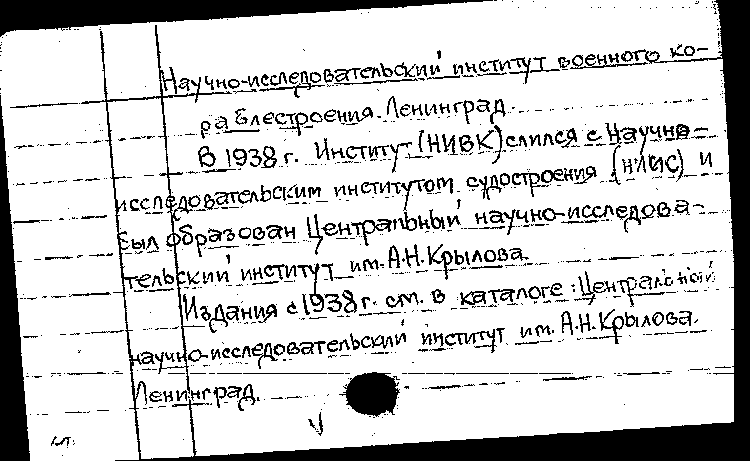 Научно-исследовательский институт военного ко-
раблестроения. Ленинград.
В 1938 г. Институт (НИВК) слился с Научно-
исследовательским институтом судостроения (НИИС) и
был образован Центральный научно-исследова-
тельский институт им. А.Н. Крылова.
Издания с 1938 г. см. в каталоге: Центральный
научно-исследовательский институт им. А.Н. Крылова.
Ленинград.